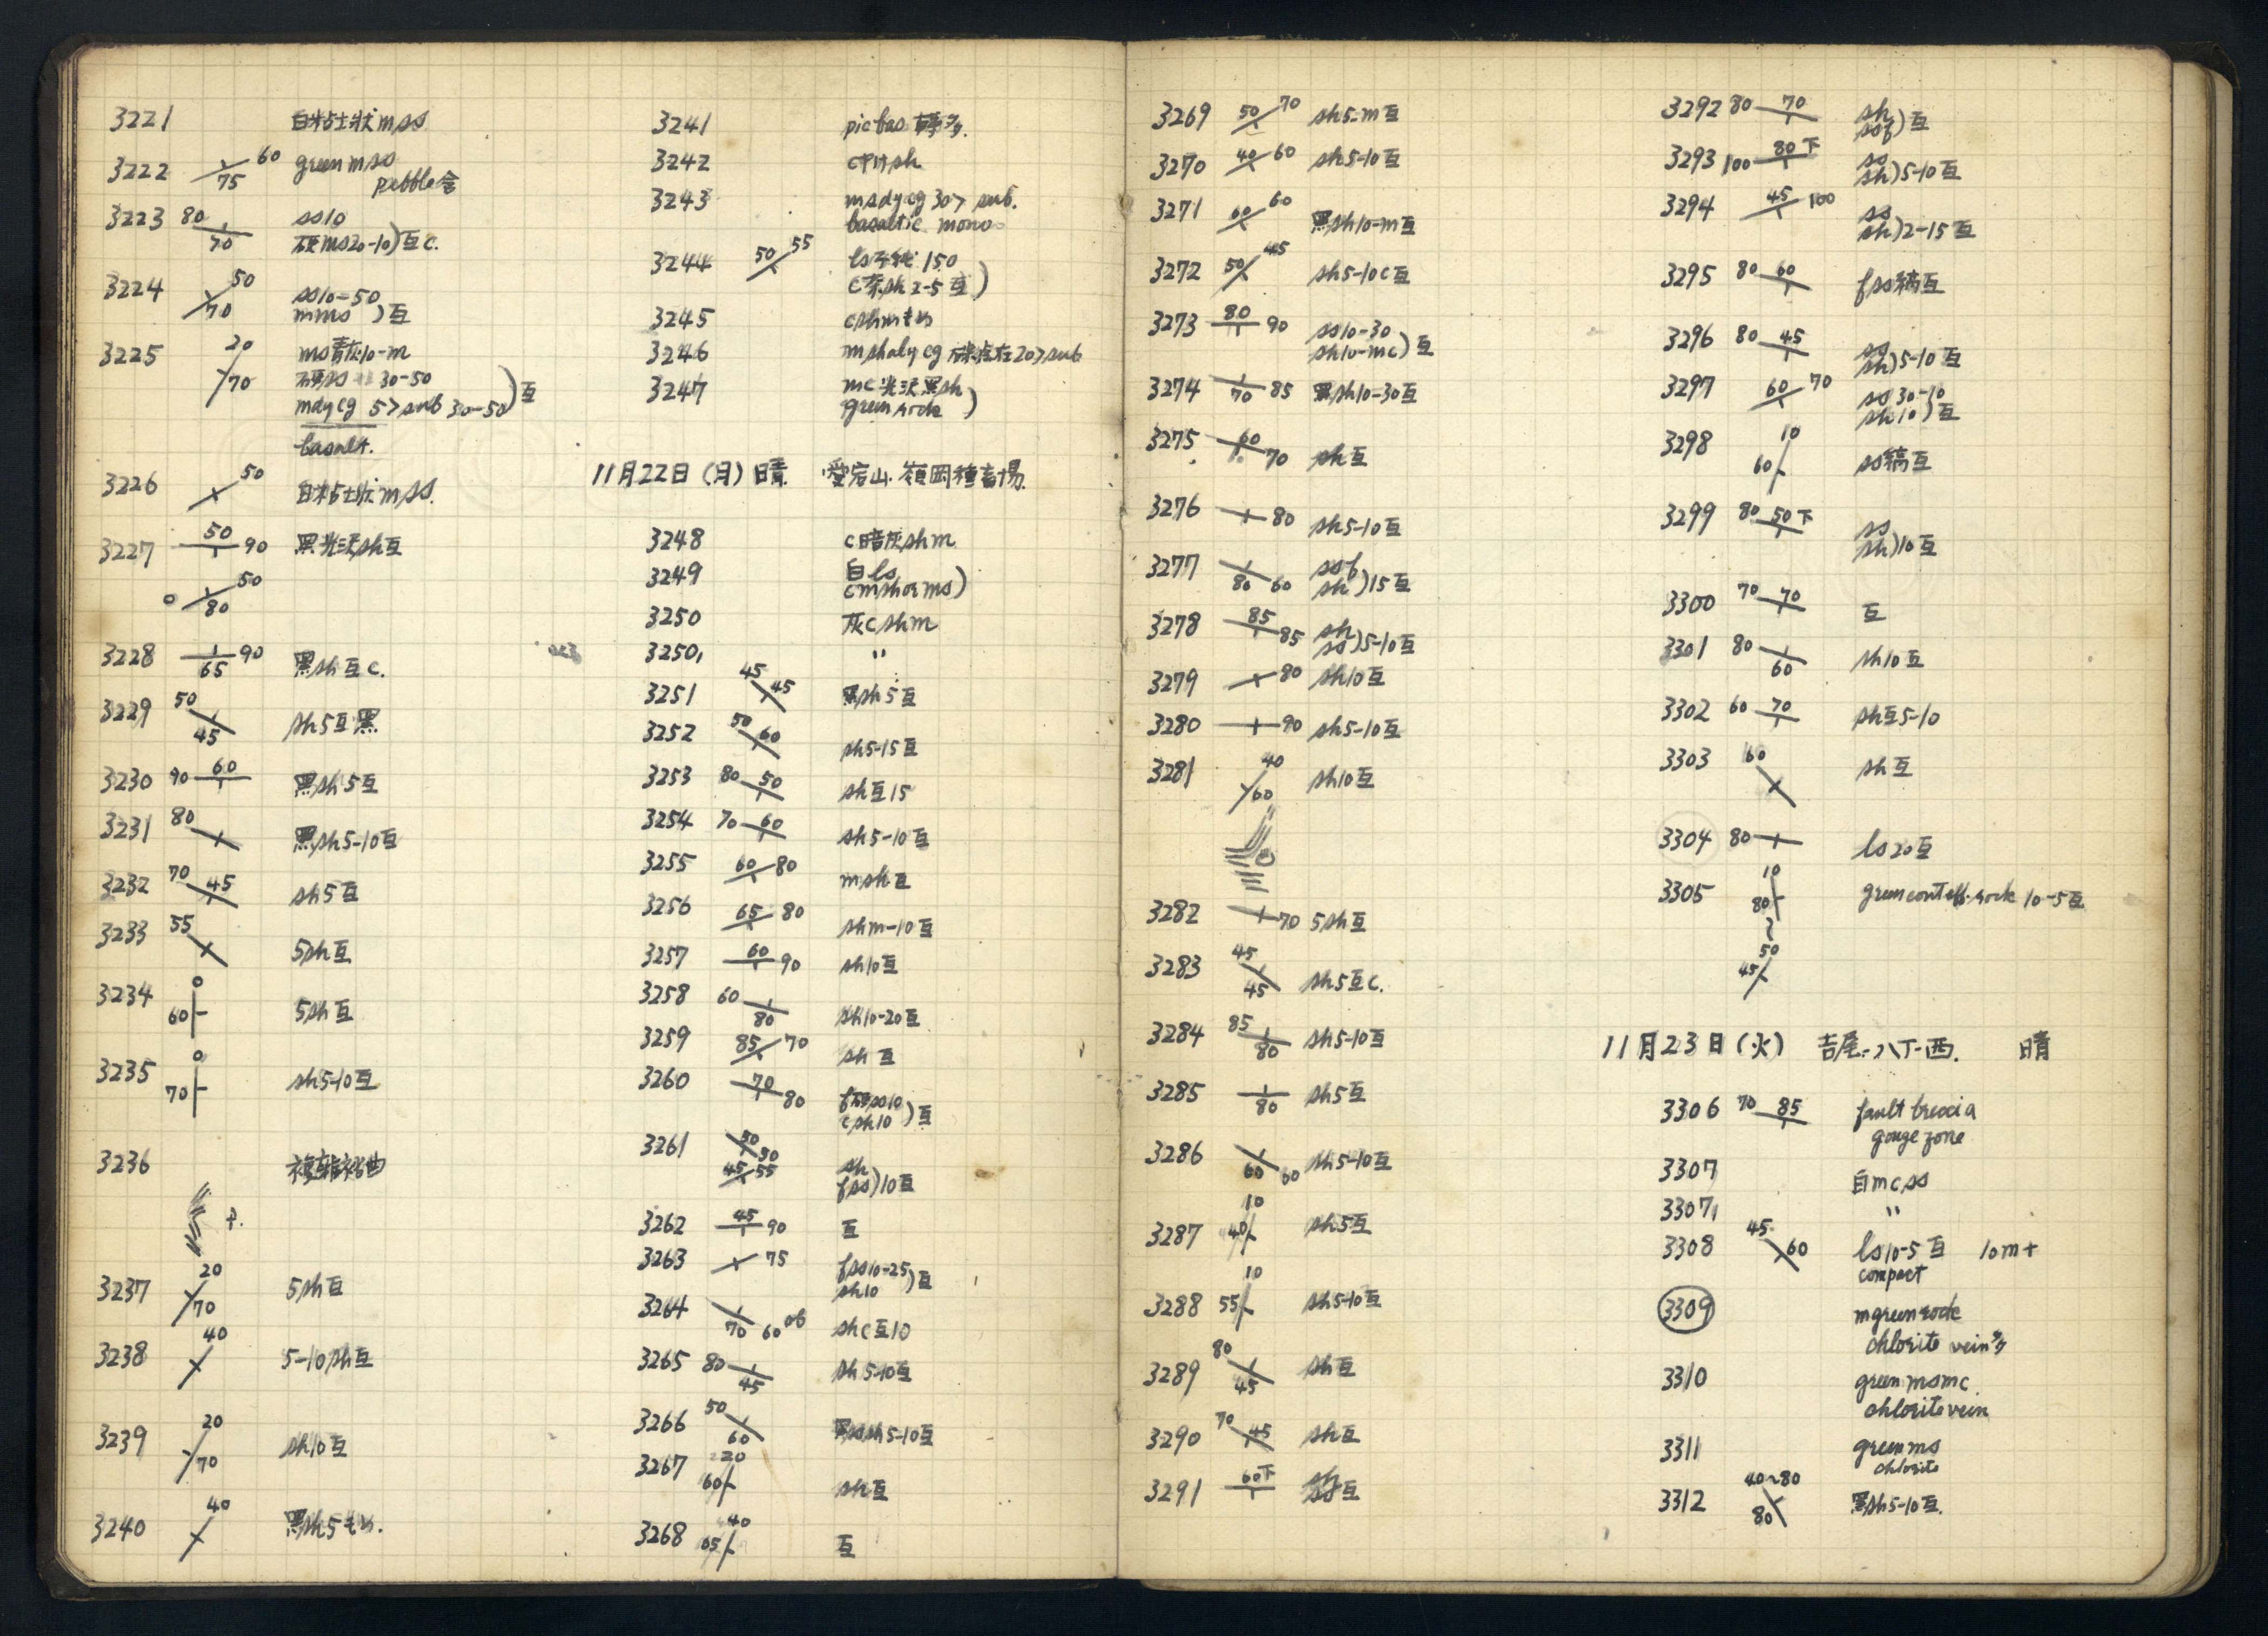 3221 白粘土状mss
3222 60 75 green mss
pebble含
3223 80 70 ss10
硬ms20-10)互c.
3224 50 70 ss10-50
mms )互
3225 20 70 ms青灰10-m
硬ss 30-50
mdycg 5>sub 30-50)互
basalt.
3226 50 白粘土状mss.
3227 50 90 黒光沢sh互
0 50 80
3228 90 65 黒sh互c.
3229 50 45 sh5互黒
3230 90 60 黒sh5互
3231 80 黒sh5-10互
3232 70 45 sh5互
3233 55 5sh互
3234 0 60 5sh互
3235 0 70 sh5-10互
3236 複雑褶曲
3237 20 70 5sh互
3238 40 5-10sh互
3239 20 70 sh10互
3240 40 黒sh5もめ.
3241 picbas 転多.
3242 c中H sh
3243 msdycg 30> sub.
basaltic mono
3244 50 55 ls 150
c sh2-5互)
3245 cshmもめ
3246 mshalycg 礫点在20>sub
3247 mc光沢黒sh
green rock )
11月22日(月)晴. 愛宕山.嶺岡種畜場.
3248 c暗灰shm
3249 白ls
cmsh or ms)
3250 灰cshm
3250₁ 〃
3251 45 45 黒sh5互
3252 50 60 sh5-15互
3253 80 50 sh互15
3254 70 60 sh5-10互
3255 60 80 msh互
3256 65 80 shm-10互
3257 60 90 sh10互
3258 60 80 sh10-20互
3259 85 70 sh互
3260 70 80 f硬ss10
csh10)互
3261 50 50
45 55 sh
fss)10互
3262 45 90 互
3263 75 fss10-25
sh10)互
3264 70 60 ob shc互10
3265 80 45 sh5-10互
3266 50 60 黒sh5-10互
3267 20 60 sh互
3268 40 65 互
3269 50 70 sh5-m互
3270 40 60 sh5-10互
3271 60 60 黒sh10-m互
3272 50 45 sh5-10c互
3273 80 90 ss10-30
sh10-mc)互
3274 70 85 黒sh10-30互
3275 60 70 sh互
3276 80 sh5-10互
3277 80 60 ssf
sh)15互
3278 85 85 sh
ss)5-10互
3279 80 sh10互
3280 90 sh5-10互
3281 40 60 sh10互
3282 70 5sh互
3283 45 45 sh5互c.
3284 85 80 sh5-10互
3285 80 sh5互
3286 60 60 sh5-10互
3287 10 40 sh5互
3288 10 55 sh5-10互
3289 80 45 sh互
3290 70 45 sh互
3291 60下 sh
ss互
3292 80 70 sh
ssf)互
3293 100 80下 ss
sh)5-10互
3294 45 100 ss
sh)2-15互
3295 80 60 fss縞互
3296 80 45 ss
sh)5-10互
3297 60 70 ss30-10
sh10)互
3298 10 60 ss縞互
3299 80 50下 ss
sh)10互
3300 70 70 互
3301 80 60 sh10互
3302 60 70 sh互5-10
3303 60 sh互
3304 80 ls20互
3305 10 80 green cont eff. rock 10-5互
50 45
11月23日(火) 吉尾-八丁-西. 晴
3306 70 85 fault breccia
gouge zone
3307 白mcss
3307₁ 〃
3308 45 60 ls10-5互 10m+
compact
3309 m green rock
chlorite vein多
3310 green msmc.
chlorite vein
3311 green ms
chlorite
3312 40~80 80 黒sh5-10互.